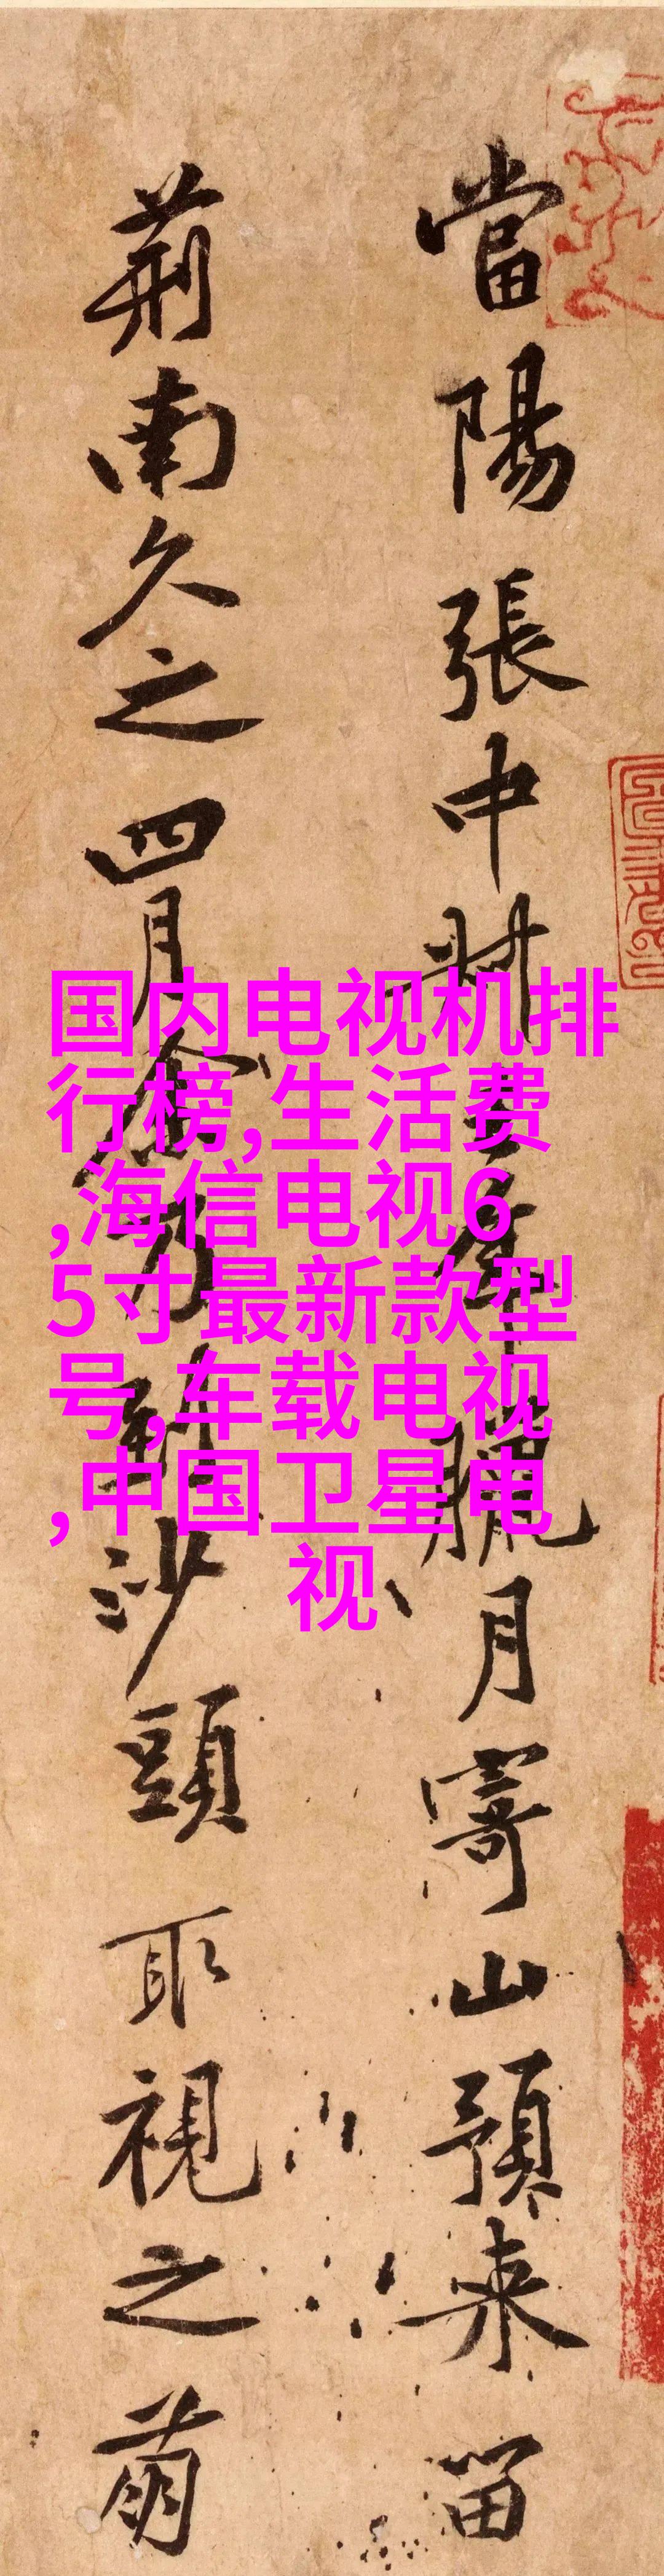 當陽張中叔去年臘月寄山預来留
荊南久之四月余乃到沙頭取視之萌
国内电视机排
行榜,生活费
,海信电视6
5寸最新款型
号,车载电视
,中国卫星电
视